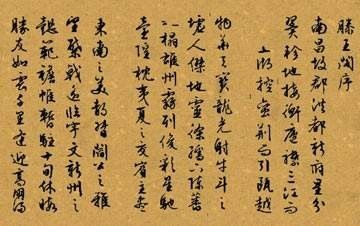 滕王閣序
南昌故郡洪都新府星分
翼軫地接衡廬襟三江而
湖控蠻荆而引甌越
物華天寶龍光射牛斗之
墟人傑地靈徐孺下陳蕃
之榻雄州霧列俊彩星馳
臺隍枕夷夏之交賓主盡
東南之美都督閻公之雅
望棨戟遙臨宇文新州之
懿範襜帷暫駐十旬休暇
勝友如雲千里逢迎高朋滿